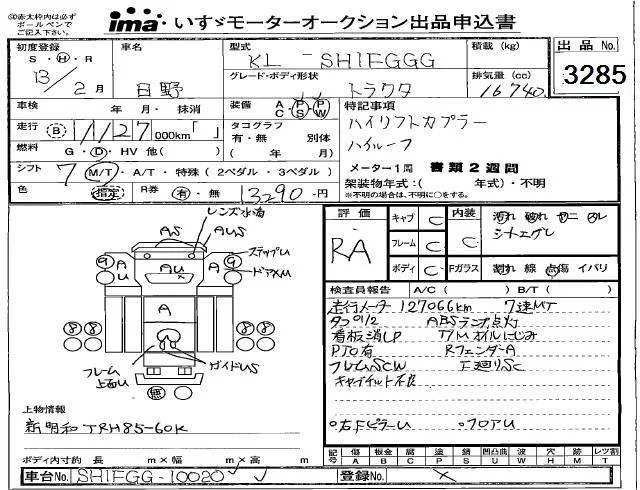 ◎赤太枠内は必ず
ボールペンで
ご記入ください。
ima いすゞモーターオークション出品申込書
初度登録
S・H・R
13年 2月
車名
日野
型式
KL-SH1FGGG
積載 (kg)
グレード・ボディ形状
トラクタ
排気量 (cc)
16740
出品No.
3285
車検 年・月・抹消
装備 AC PS PW
特記事項
ハイリフトカプラー
ハイルーフ
メーター1周 書類2週間
走行 B 1/127 000km「 」
タコグラフ
有・無 別体
( 年 月)
燃料 G・D・HV 他( )
シフト 7 M/T・A/T・特殊 (2ペダル・3ペダル)
架装物年式:( 年式)・不明
※不明の場合は、不明に○をする。
色 指定 R券 有・無 13290-円
レンズ水滴
AS AUS
ステップU
ドアメM
9 A AU A 9
A
8 8 8 8
フレーム
上面U
ガイドUS
評価
RA
キャブ C
フレーム C
ボディ C
内装 C
汚れ 破れ コゲ スレ
シートエグレ
Fガラス 割れ 線 点傷 イバリ
検査員報告 A/C ( ) B/T ( )
走行メータ 127066km 7速MT
タコ012 ABSランプ点灯
看板消しP T/Mオイルにじみ
PTO有 RフェンダーA
フレームSCW 下廻りSC
キャブチルト不良
○右FピラーU ○フロアU
上物情報
新明和 TRH85-60K
ボディ内寸約 長 m×幅 m×高 m
記号 傷 A 板金 B 腐 C 塗 P 錆 S 凹凸曲 U 波 W 穴 H 跡 M レツ割 T
車台No. SH1FGG-10020
登録No. ×